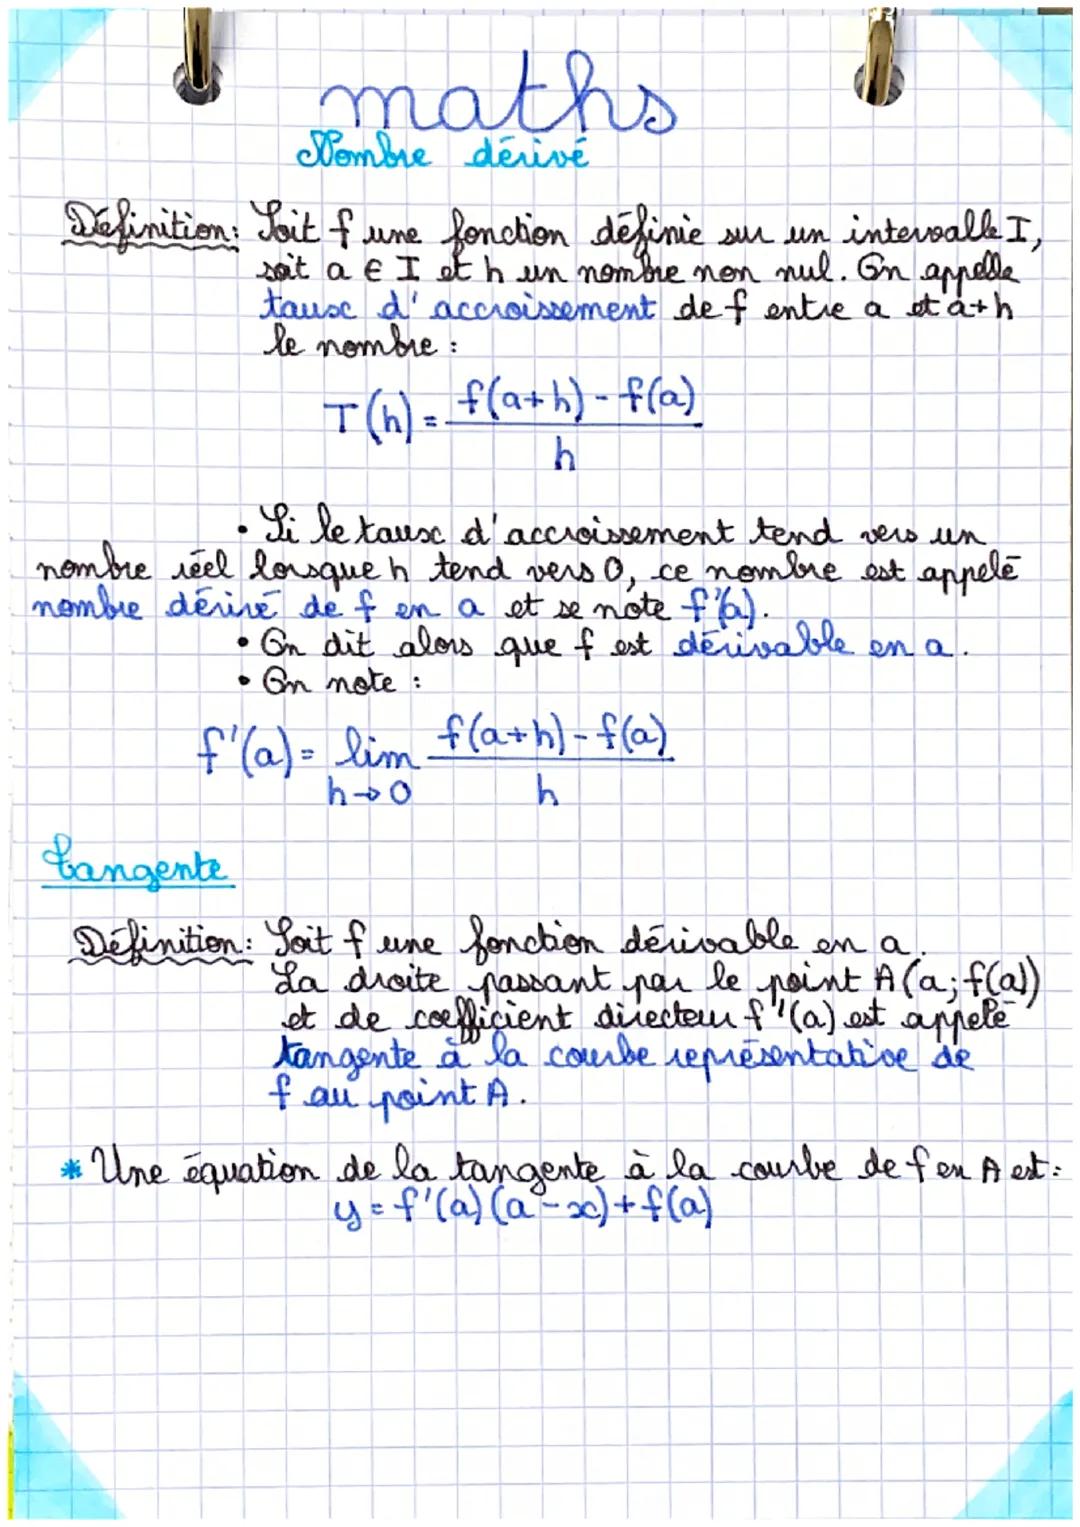 maths
Nombre dérivé
Définition: Soit f une fonction définie sur un intervalle I,
soit a ∈ I et h un nombre non nul. On appelle
taux d'accroissement de f entre a et a+h
le nombre :
T(h) = (f(a+h) - f(a)) / h
• Si le taux d'accroissement tend vers un
nombre réel lorsque h tend vers 0, ce nombre est appelé
nombre dérivé de f en a et se note f'(a).
• On dit alors que f est dérivable en a.
• On note :
f'(a) = lim h→0 (f(a+h) - f(a)) / h
Tangente
Définition: Soit f une fonction dérivable en a.
La droite passant par le point A (a; f(a))
et de coefficient directeur f'(a) est appelé
tangente à la courbe représentative de
f au point A.
* Une équation de la tangente à la courbe de f en A est :
y = f'(a) (a - x) + f(a)